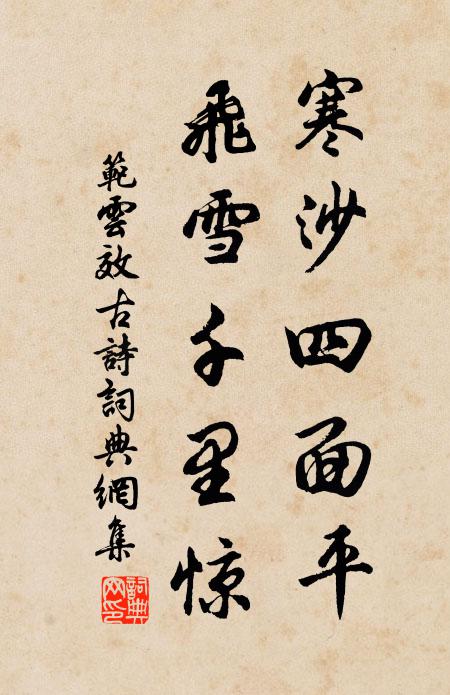 寒沙四面平
飛雪千里惊
範雲效古詩詞典網集
詞典網印